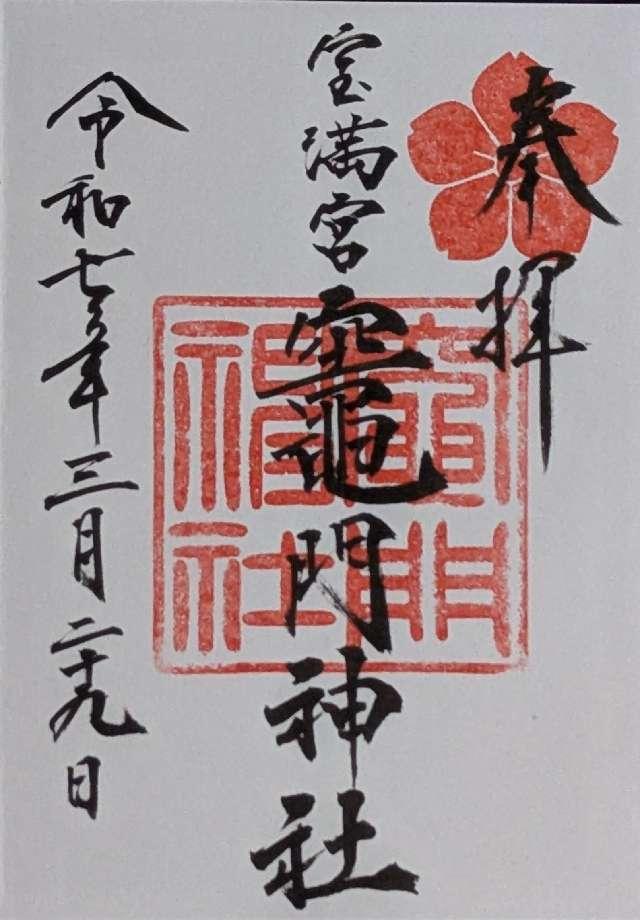 奉拝
宝満宮
竈門神社
竈門神社
令和七年三月二十九日